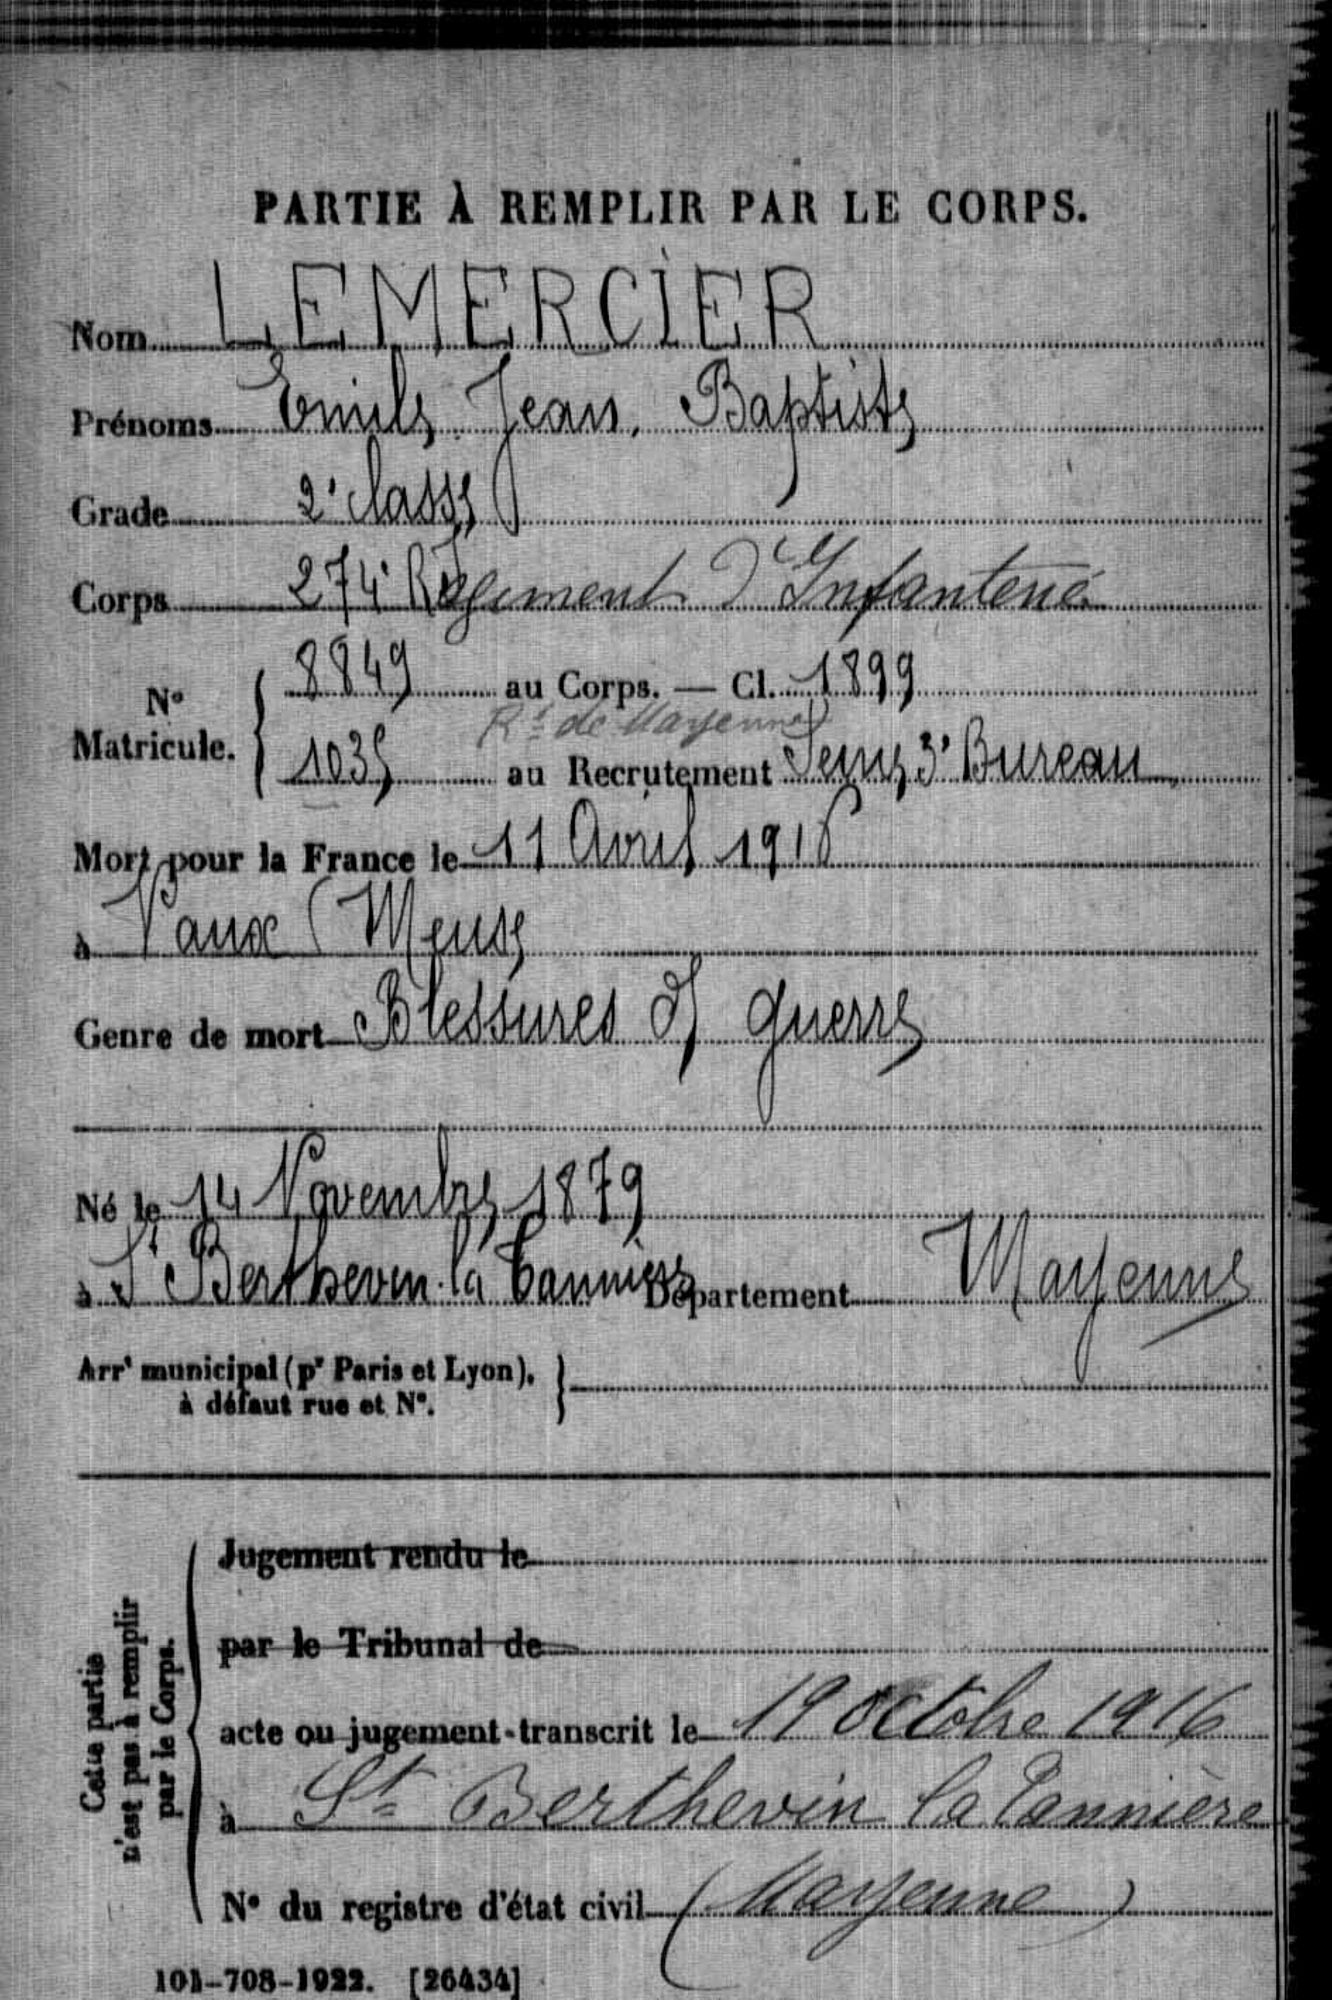 PARTIE À REMPLIR PAR LE CORPS.
Nom LEMERCIER
Prénoms Emile Jean, Baptiste
Grade 2e classe
Corps 274e Régiment d'Infanterie
No Matricule. 8849 au Corps. — Cl. 1899
Rt de Mayenne
1035 au Recrutement Seine 3e Bureau
Mort pour la France le 11 Avril 1916
à Vaux (Meuse
Genre de mort Blessures de guerre
Né le 14 Novembre 1879
à St Berthevin-la Tannière Département Mayenne
Arrt municipal (pr Paris et Lyon),
à défaut rue et No.
Cette partie n'est pas à remplir par le Corps.
Jugement rendu le
par le Tribunal de
acte ou jugement transcrit le 19 Octobre 1916
à St Berthevin la Tannière
No du registre d'état civil (Mayenne)
101-708-1922. [26434]